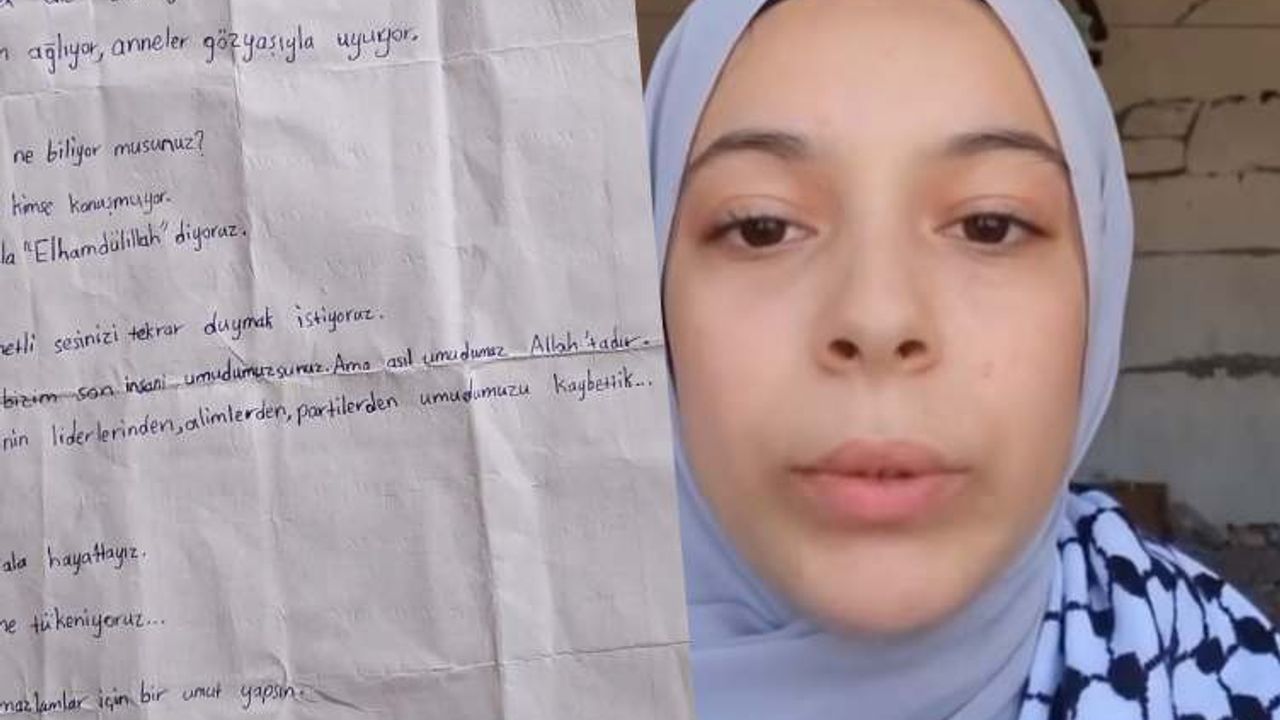 ağlıyor, anneler gözyaşıyla uyuyor.
ne biliyor musunuz?
kimse konuşmuyor.
la "Elhamdülillah" diyoruz.
etli sesinizi tekrar duymak istiyoruz.
bizim son insani umudumuzsunuz. Ama asıl umudumuz Allah'tadır.
nin liderlerinden, alimlerden, partilerden umudumuzu kaybettik...
ala hayattayız.
tükeniyoruz...
mazlamlar için bir umut yapsın.